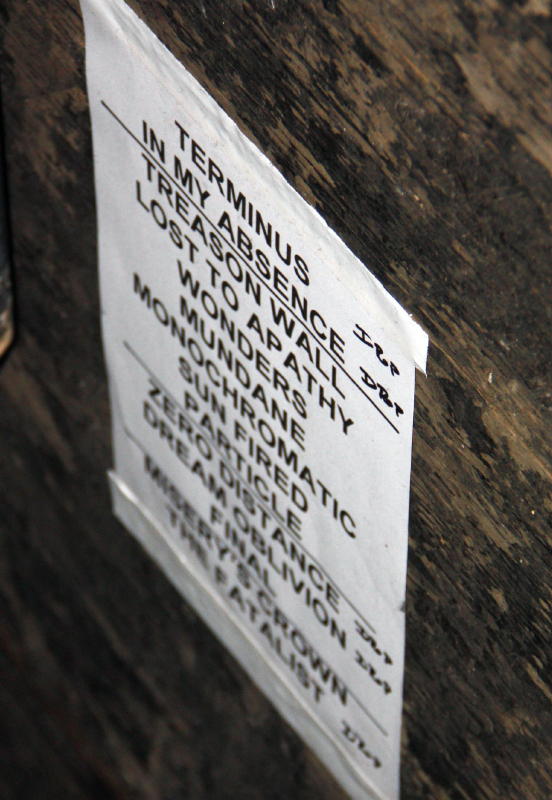 TERMINUS
IN MY ABSENCE
TREASON WALL
LOST TO APATHY
WONDERS
MUNDANE
MONOCHROMATIC
SUN FIRED
PARTICLE
ZERO DISTANCE
DREAM OBLIVION
FINAL
MISERY'S CROWN
THE FATALIST